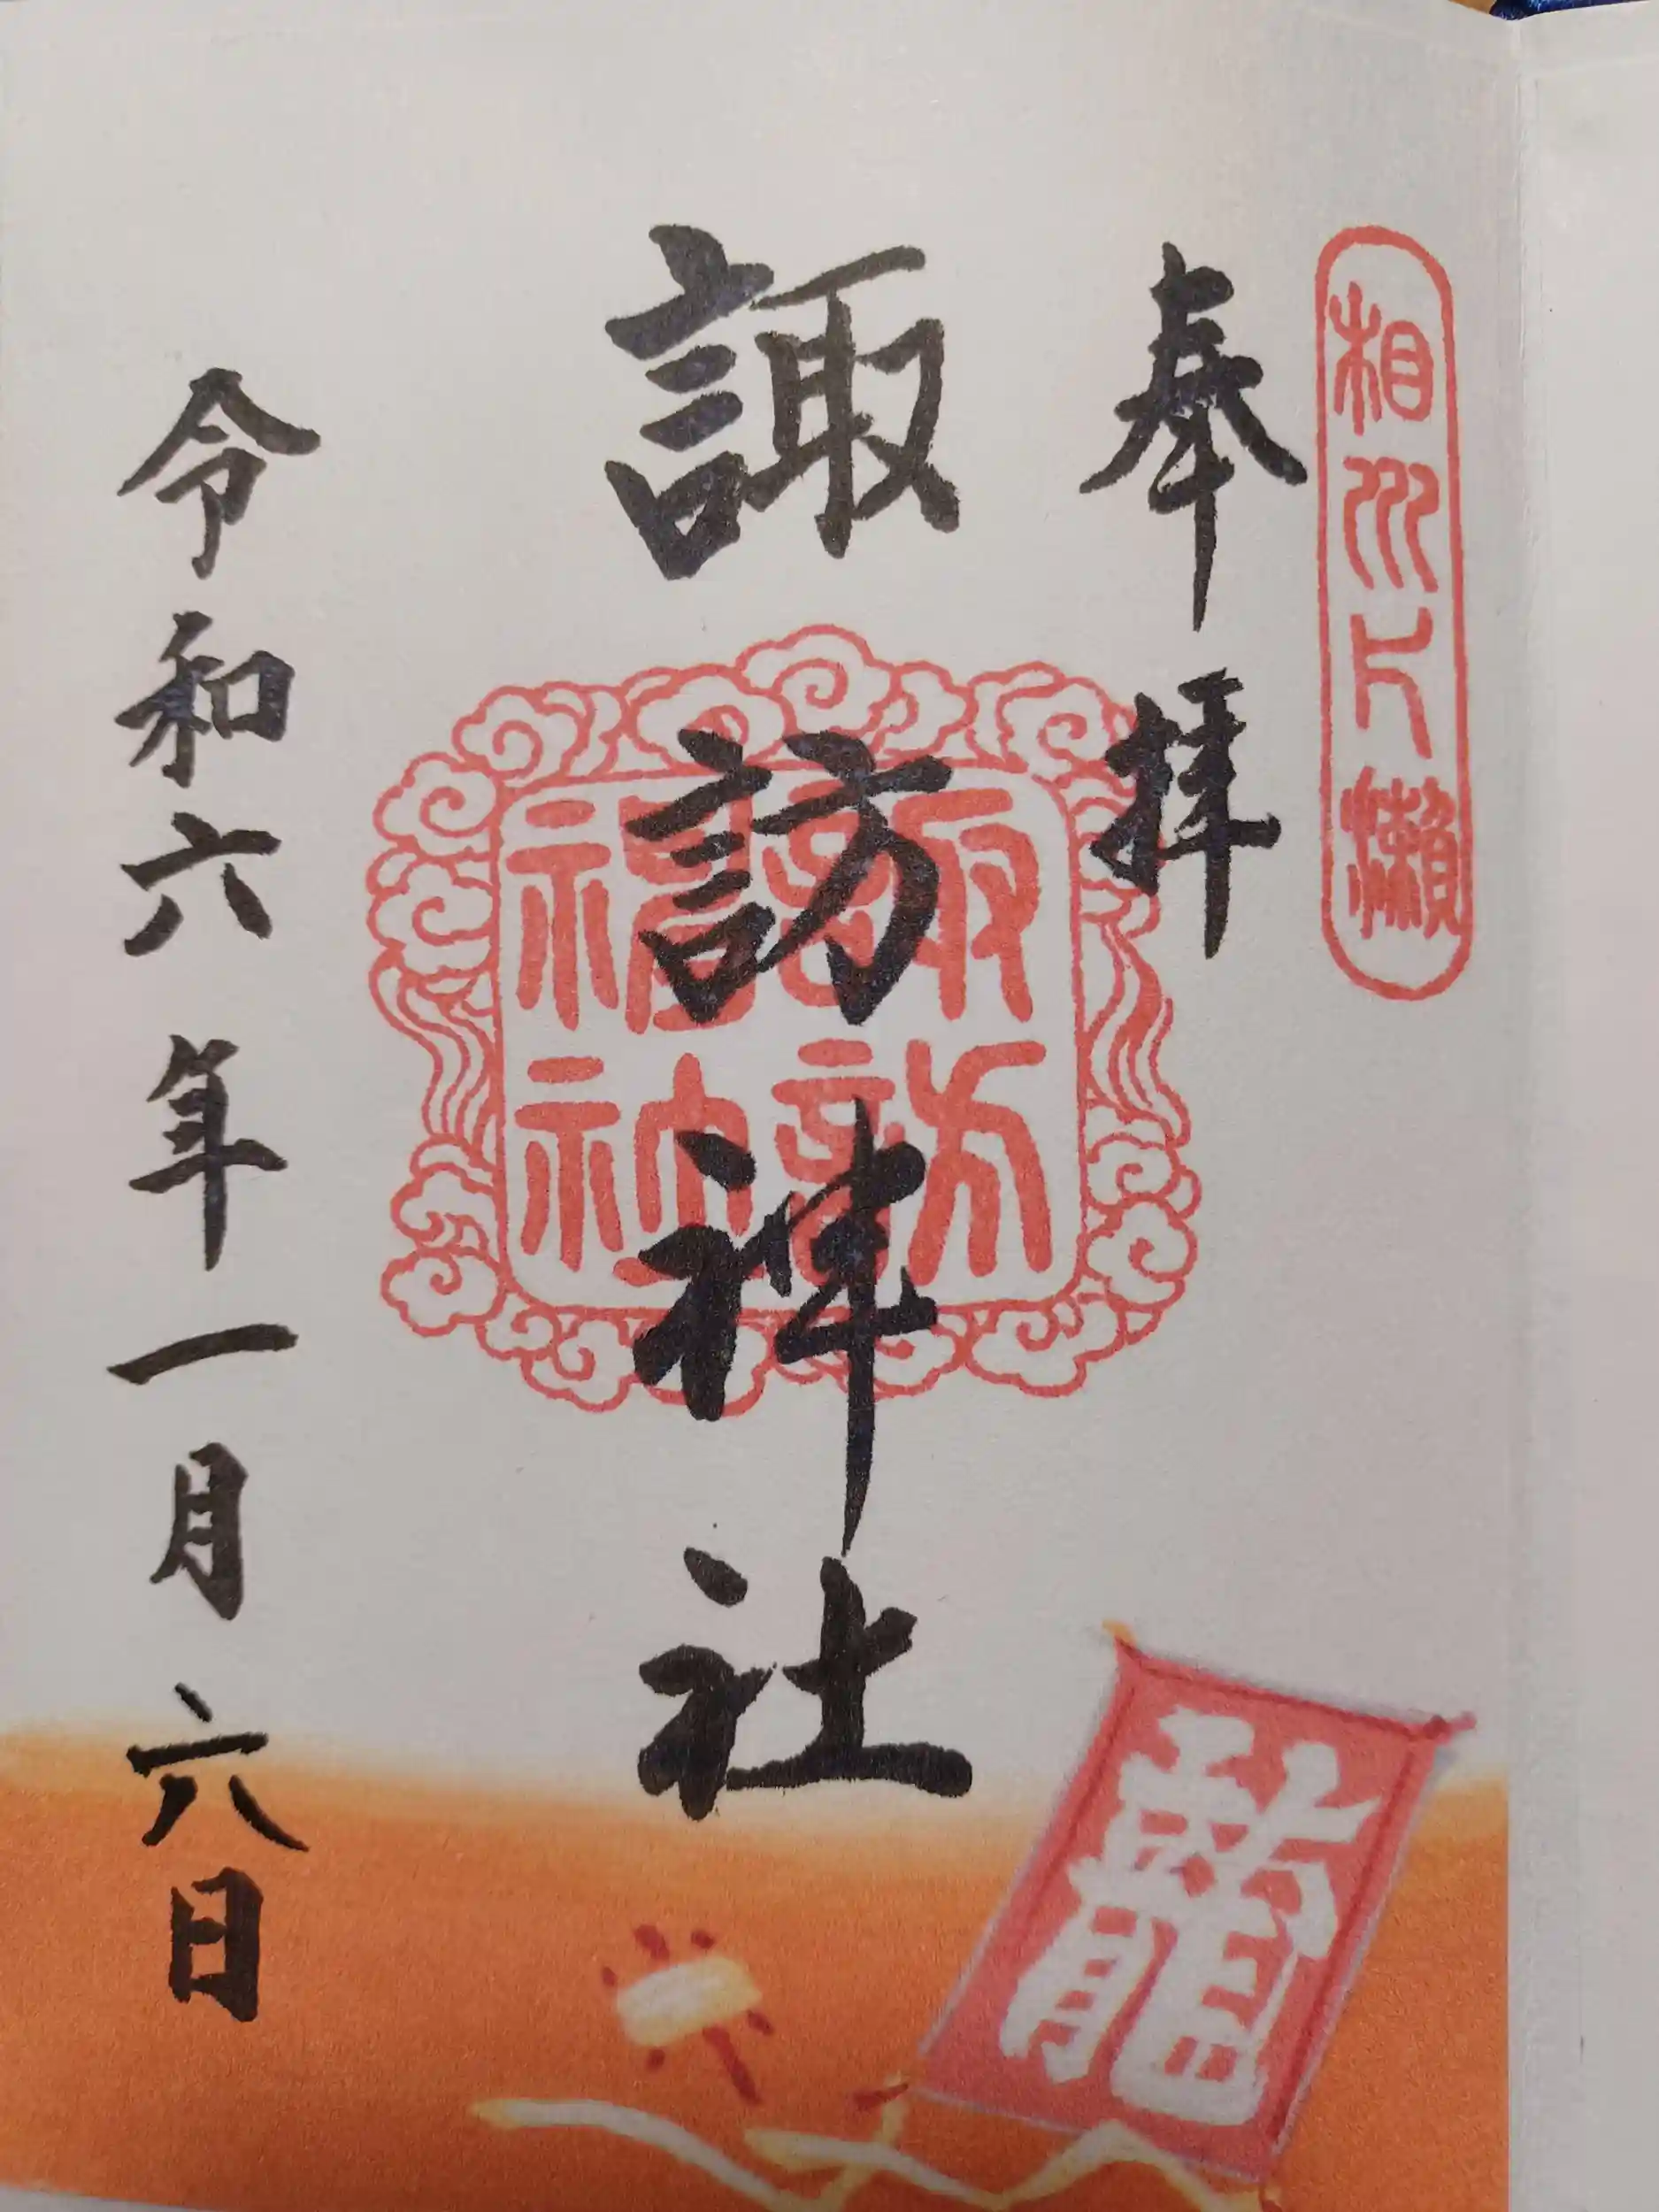 相州下瀬
奉拝
諏訪神社
諏訪神社
令和六年一月六日
龍